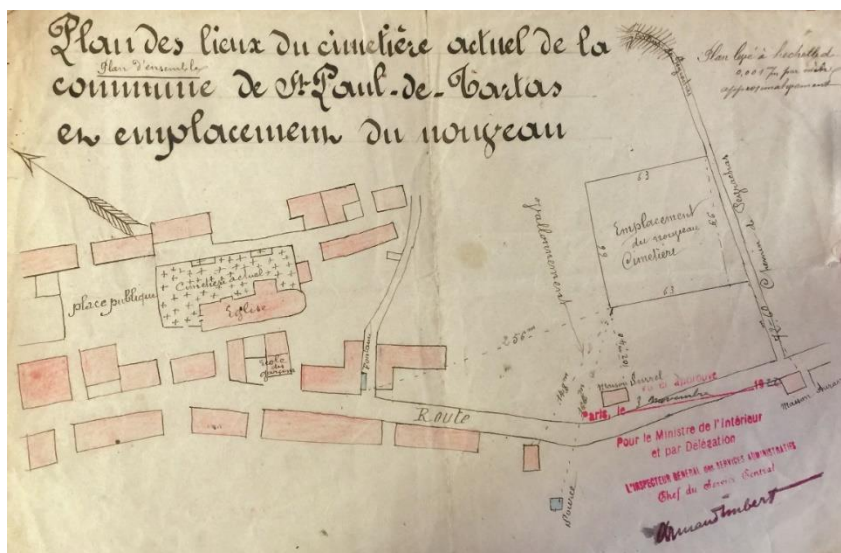 Plan des lieux du cimetière actuel de la
Plan d'ensemble
commune de St Paul-de-Tartas
et emplacement du nouveau
Plan levé à
0,001 pr mètre
approximativement
place publique
Cimetière actuel
Eglise
Ecole
des
garçons
Fontaine
Route
Vallonnement
256m
63
Emplacement
du nouveau
Cimetière
63
Chemin de
maison Burrel
Maison
Source
Vu et Approuvé
Paris, le 3 novembre 192
Pour le Ministre de l'Intérieur
et par Délégation
L'INSPECTEUR GÉNÉRAL DES SERVICES ADMINISTRATIFS
Chef du Service Central
Armand Imbert